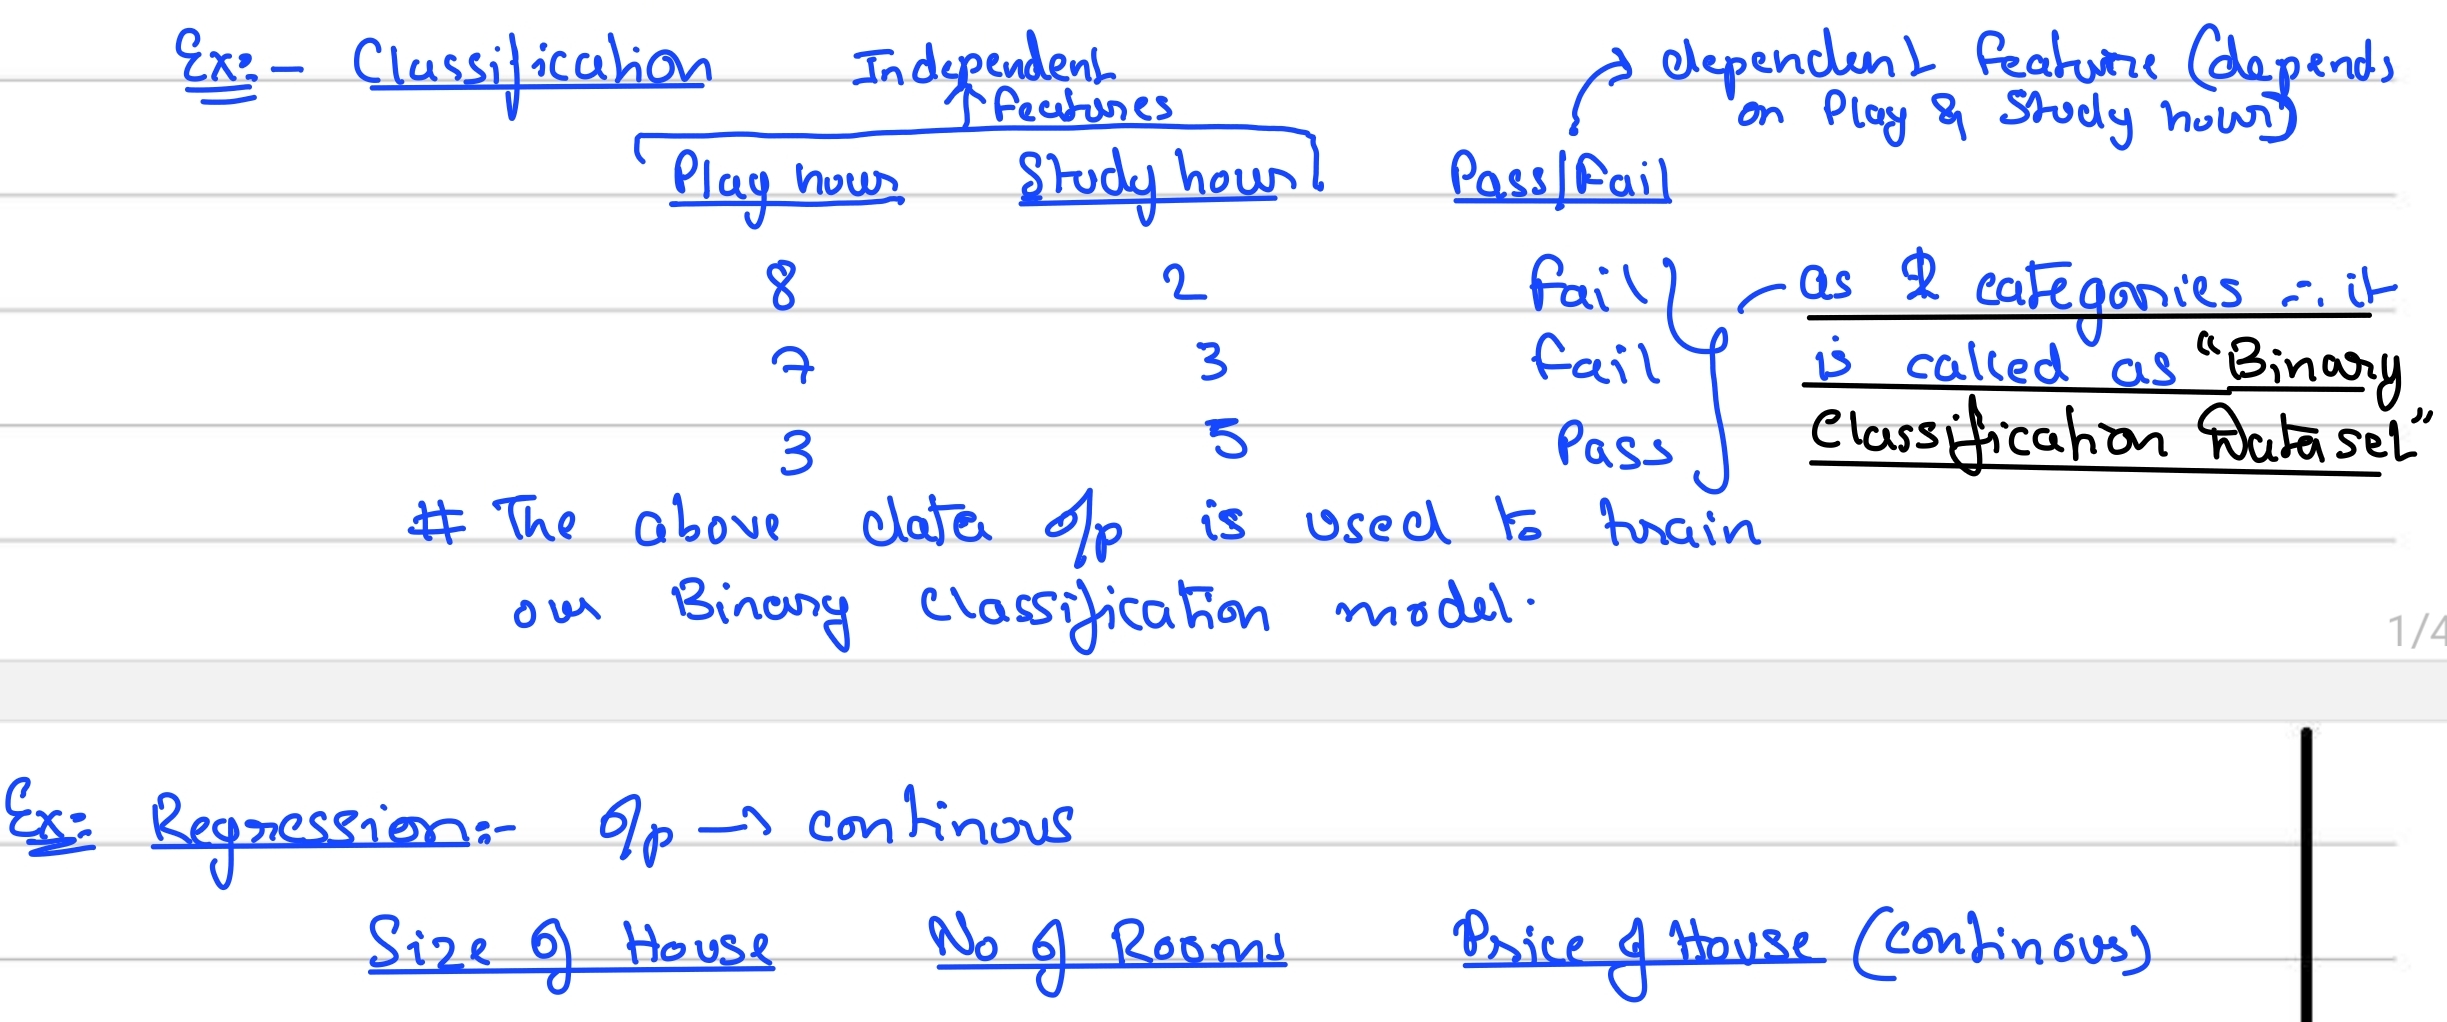 Ex:- Classification Independent features → dependent feature (depends
on Play & Study hours)
Play hours Study hours Pass/Fail
8 2 Fail as 2 categories ∴ it
7 3 Fail is called as "Binary
3 5 Pass Classification Dataset"
# The above data o/p is used to train
our Binary Classification model.
1/4
Ex: Regression:- o/p → continous
Size of House No of Rooms Price of House (Continous)